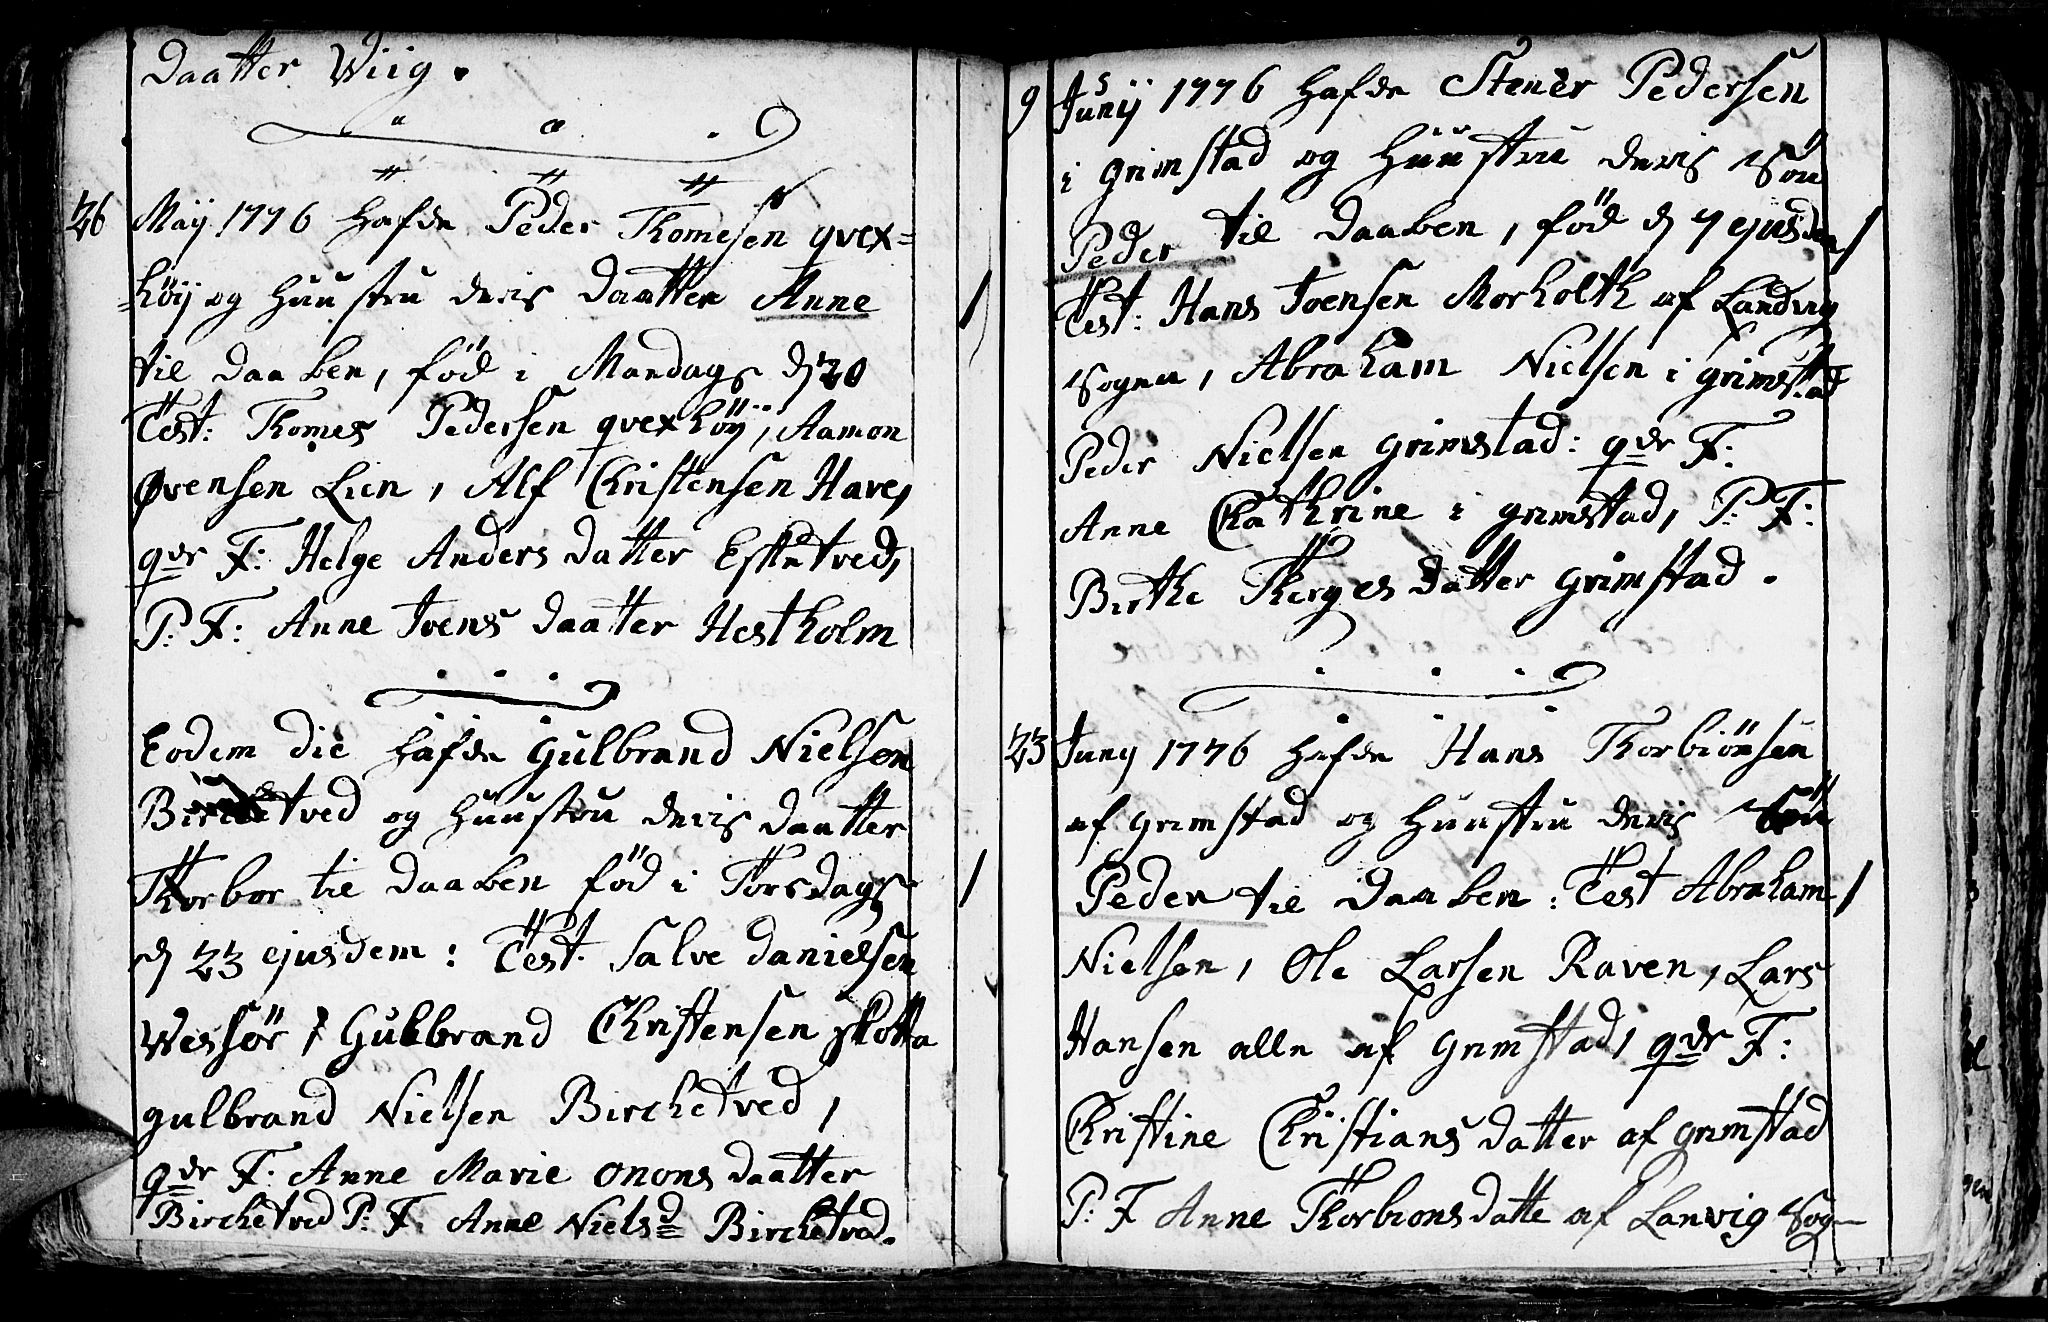 Daatter Wiig.
26 Maij 1776 hafde Peder Thomesen qvex=
=höij og Huustru deris Daatter Anne
til Daaben, föd i Mandags d 20
Test: Thomes Pedersen qvexhöij, Aamon
Øvensen Lien, Alf Christensen Have,
qvdr F: Helge Anders Datter Esketved,
P: F: Anne Joens Daatter Hestholm
Eodem die hafde Gulbrand Nielsen
Birketved og Huustru deris Daatter
Thorbor til Daaben föd i Torsdags
d 23 ejusdem: Test. Salve Danielsen
Wessör, Gulbrand Christensen Skotta
gulbrand Nielsen Birchetved,
qvdr F: Anne Marie Onons Daatter
Birchetved P: F: Anne Nielsd Birchetved.
9 Junij 1776 hafde Stener Pedersen
i grimstad og Huustrue deris Sön
Peder til Daaben, föd d 7 ejusdem
Test: Hans Joensen Morholth af Landvig
Sogn, Abraham Nielsen i grimstad
Peder Nielsen grimstad: qvdr F:
Anne Chathrine i grimstad, P: F:
Birthe Therges Datter grimstad.
23 Juny 1776 hafde Hans Thorbiönsen
af grimstad og Huustru deris Sön
Peder til Daaben: Test Abraham
Nielsen, Ole Larsen Raven, Lars
Hansen alle af Grimstad, qvdr F:
Christine Christians Datter af grimstad
P: F Anne Thorbions datte af Lanvig Sog-